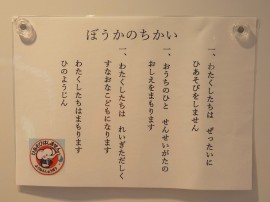 ぼうかのちかい
一、わたくしたちは ぜったいに
ひあそびをしません
一、おうちのひと せんせいがたの
おしえをまもります
一、わたくしたちは れいぎただしく
すなおなこどもになります
わたくしたちはまもります
ひのようじん